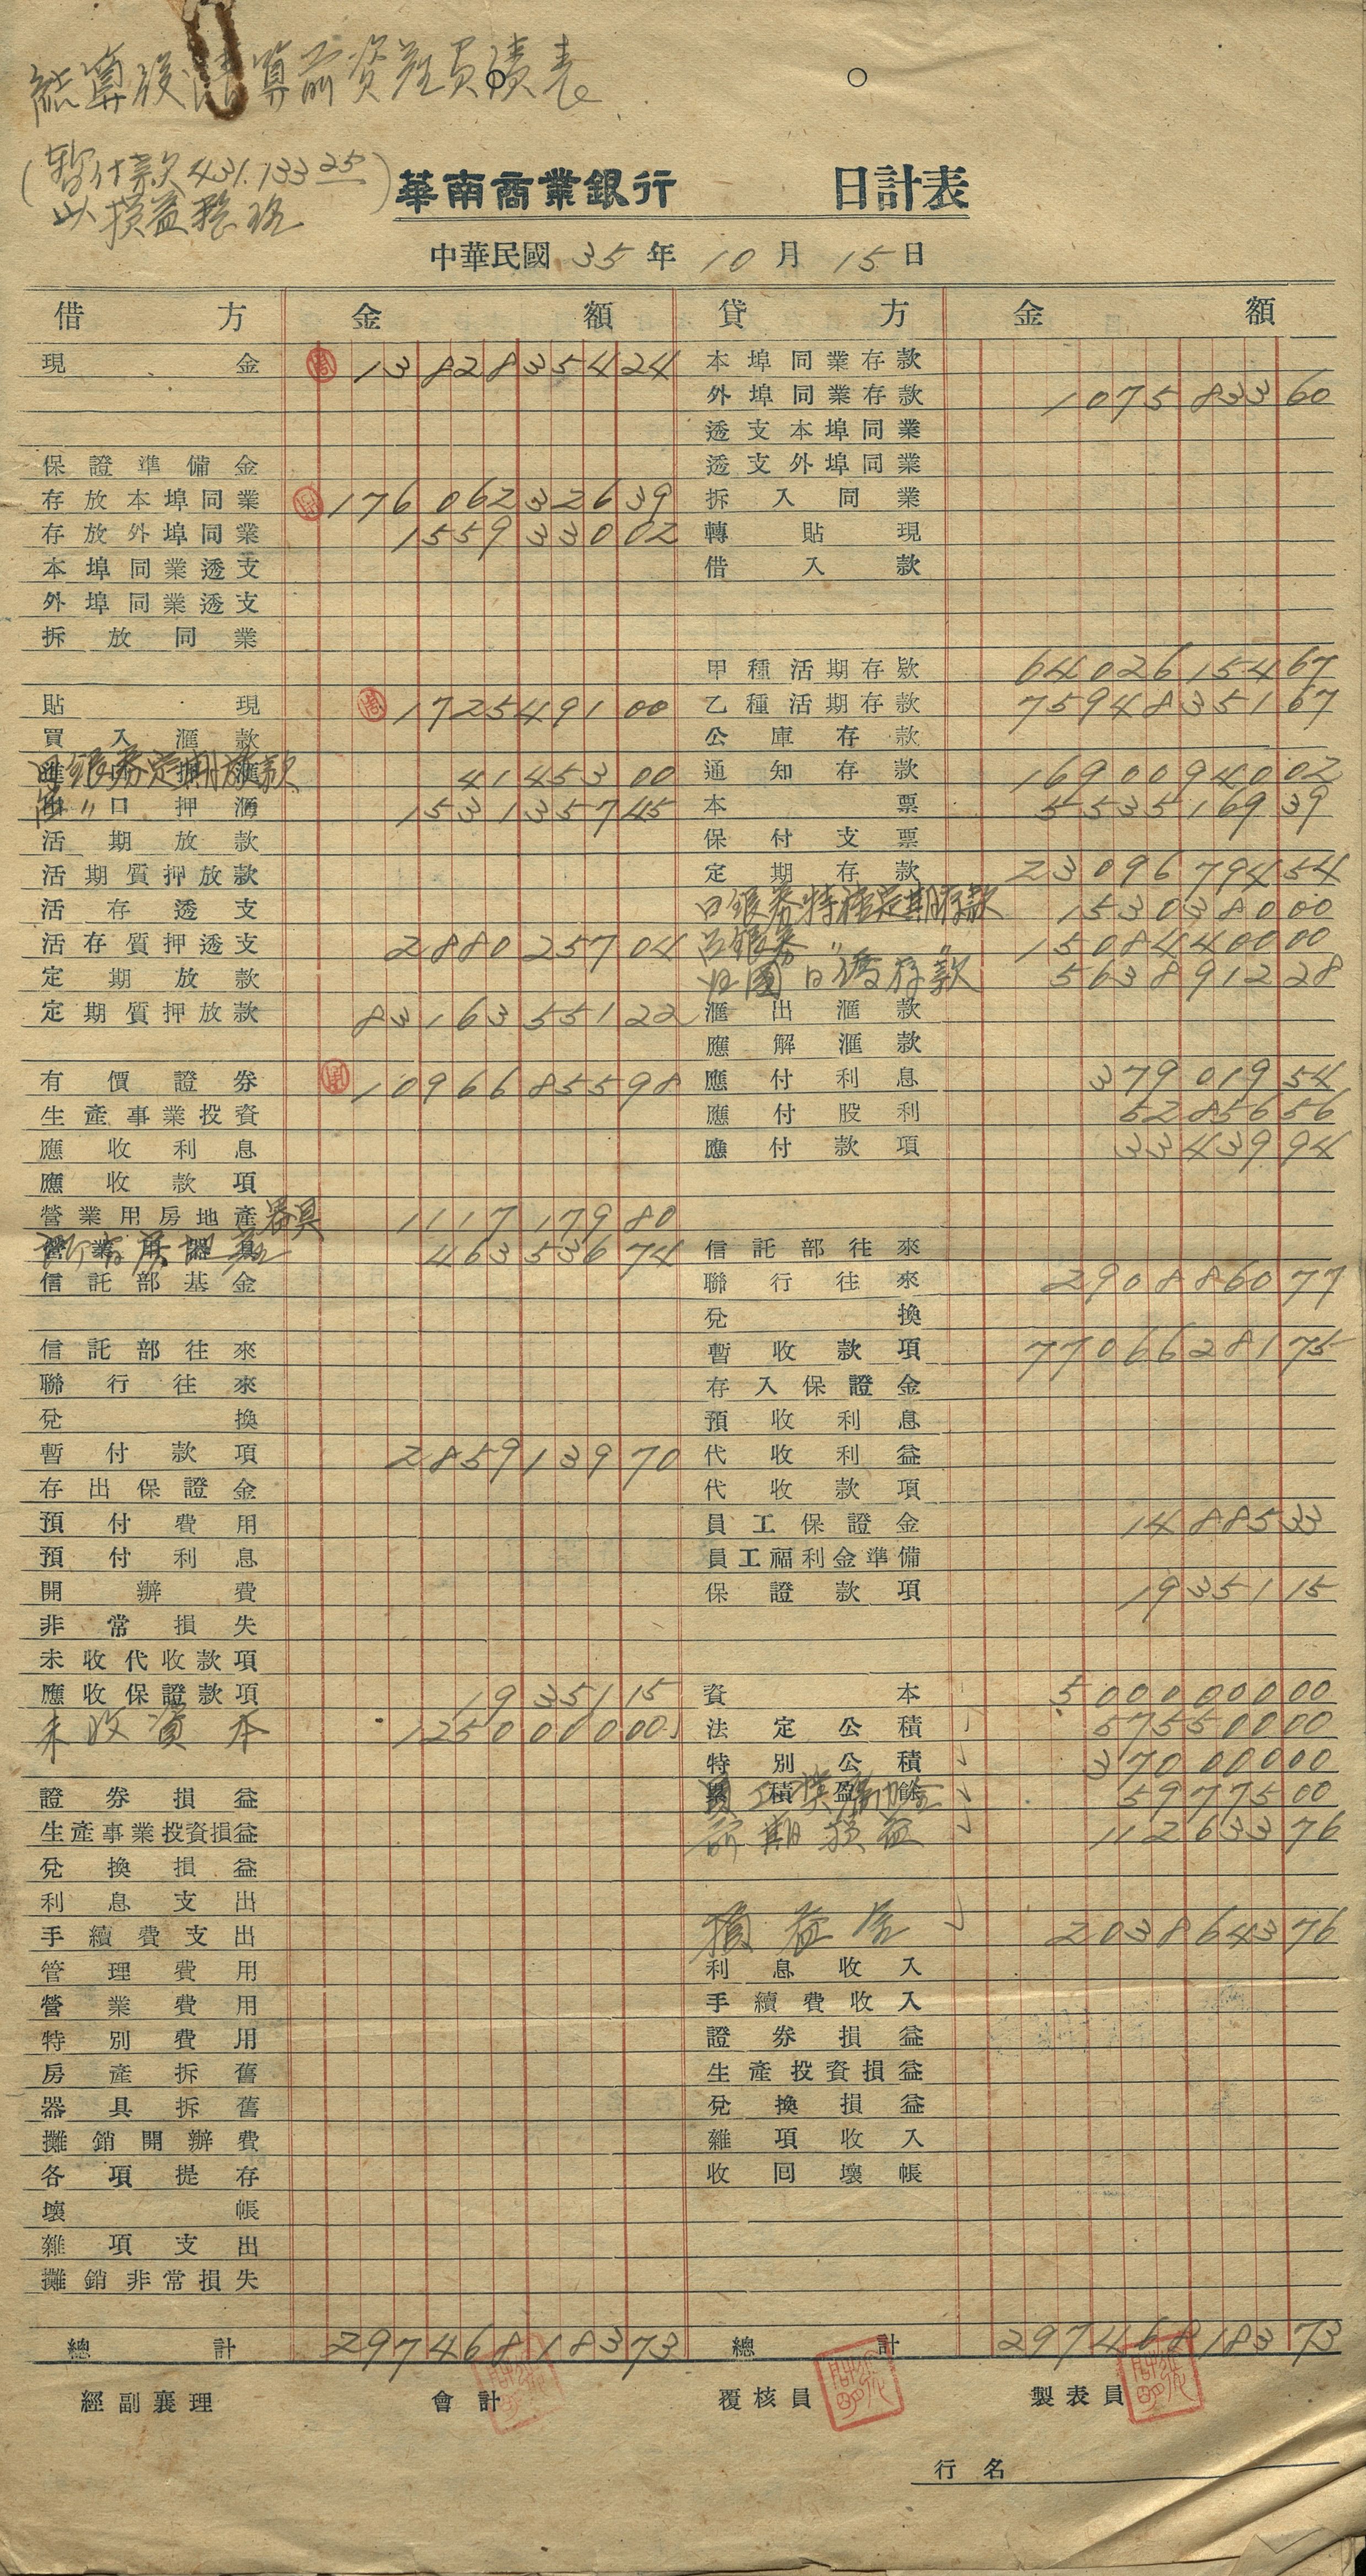 結算後清算前資產負債表
(暫付款431.133 25)
以損益整理
華南商業銀行 日計表
中華民國 35 年 10 月 15 日
借方 金額 貸方 金額
現金 13828354 24 本埠同業存款
外埠同業存款 1075833 60
透支本埠同業
保證準備金 透支外埠同業
存放本埠同業 176062326 39 拆入同業
存放外埠同業 1559330 02 轉貼現
本埠同業透支 借入款
外埠同業透支
拆放同業
甲種活期存款 64026154 67
貼現 1725491 00 乙種活期存款 75948351 67
買入滙款 公庫存款
日銀券定期放款 41453 00 通知存款 16900940 02
出口押滙 1531357 45 本票 5535169 39
活期放款 保付支票
活期質押放款 定期存款 23096794 54
活存透支 日銀券特種定期存款 1530380 00
活存質押透支 2880257 04 台銀券 〃 〃 15084400 00
定期放款 歸國日僑存款 5638912 28
定期質押放款 83163551 22 滙出滙款
應解滙款
有價證券 10966855 98 應付利息 379019 54
生產事業投資 應付股利 52856 56
應收利息 應付款項 33439 94
應收款項
營業用房地產器具 1117179 80
營業用器具 463536 74 信託部往來
信託部基金 聯行往來 2908860 77
兌換
信託部往來 暫收款項 77066281 75
聯行往來 存入保證金
兌換 預收利息
暫付款項 2859139 70 代收利益
存出保證金 代收款項
預付費用 員工保證金 14885 33
預付利息 員工福利金準備
開辦費 保證款項 19351 15
非常損失
未收代收款項
應收保證款項 19351 15 資本 5000000 00
未收資本 1250000 00 法定公積 575500 00
特別公積 370000 00
證券損益 員工獎勵金 59775 00
生產事業投資損益 前期損益 112633 76
兌換損益
利息支出
手續費支出 損益金 2038643 76
管理費用 利息收入
營業費用 手續費收入
特別費用 證券損益
房產拆舊 生產投資損益
器具拆舊 兌換損益
攤銷開辦費 雜項收入
各項提存 收回壞帳
壞帳
雜項支出
攤銷非常損失
總計 297468183 73 總計 297468183 73
經副襄理 會計 覆核員 製表員
行名